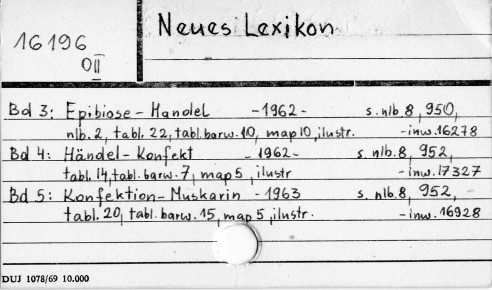 Neues Lexikon
16196
O II
Bd 3: Epibiose - Handel - 1962 - s. nlb. 8, 950,
nlb. 2, tabl. 22, tabl. barw. 10, map 10, ilustr. - inw. 16278
Bd 4: Händel - Konfekt - 1962 - s. nlb. 8, 952,
tabl. 14, tabl. barw. 7, map 5, ilustr - inw. 17327
Bd 5: Konfektion - Muskarin - 1963 s. nlb. 8, 952,
tabl. 20, tabl. barw. 15, map 5, ilustr. - inw. 16928
DUJ 1078/69 10.000